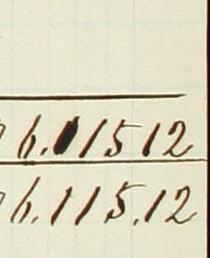 6.11512
6.115.12